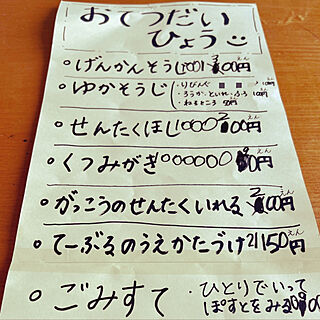 おてつだい
ひょう
げんかんそうじ 100円
ゆかそうじ
・りびんぐ
・ろうか、といれ、ふろ 10円
・ねるところ
せんたくほし 100円
くつみがき 円
がっこうのせんたくいれる 00円
てーぶるのうえかたづけ 150円
ごみすて
・ひとりでいって
ぽすとをみる